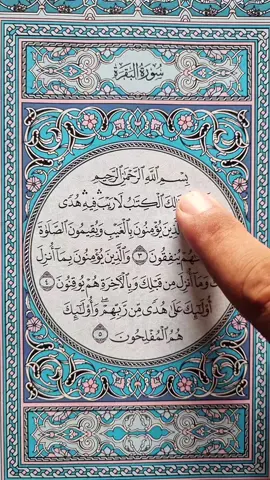 سُورَةُ البَقَرَةِ
بِسْمِ اللَّهِ الرَّحْمَٰنِ الرَّحِيمِ
الْكِتَابُ لَا رَيْبَ ۛ فِيهِ ۛ هُدًى
يُؤْمِنُونَ بِالْغَيْبِ وَيُقِيمُونَ الصَّلَاةَ
يُنفِقُونَ ٣ وَالَّذِينَ يُؤْمِنُونَ بِمَا أُنزِلَ
وَمَا أُنزِلَ مِن قَبْلِكَ وَبِالْآخِرَةِ هُمْ يُوقِنُونَ ٤
أُولَٰئِكَ عَلَىٰ هُدًى مِّن رَّبِّهِمْ ۖ وَأُولَٰئِكَ
هُمُ الْمُفْلِحُونَ ٥